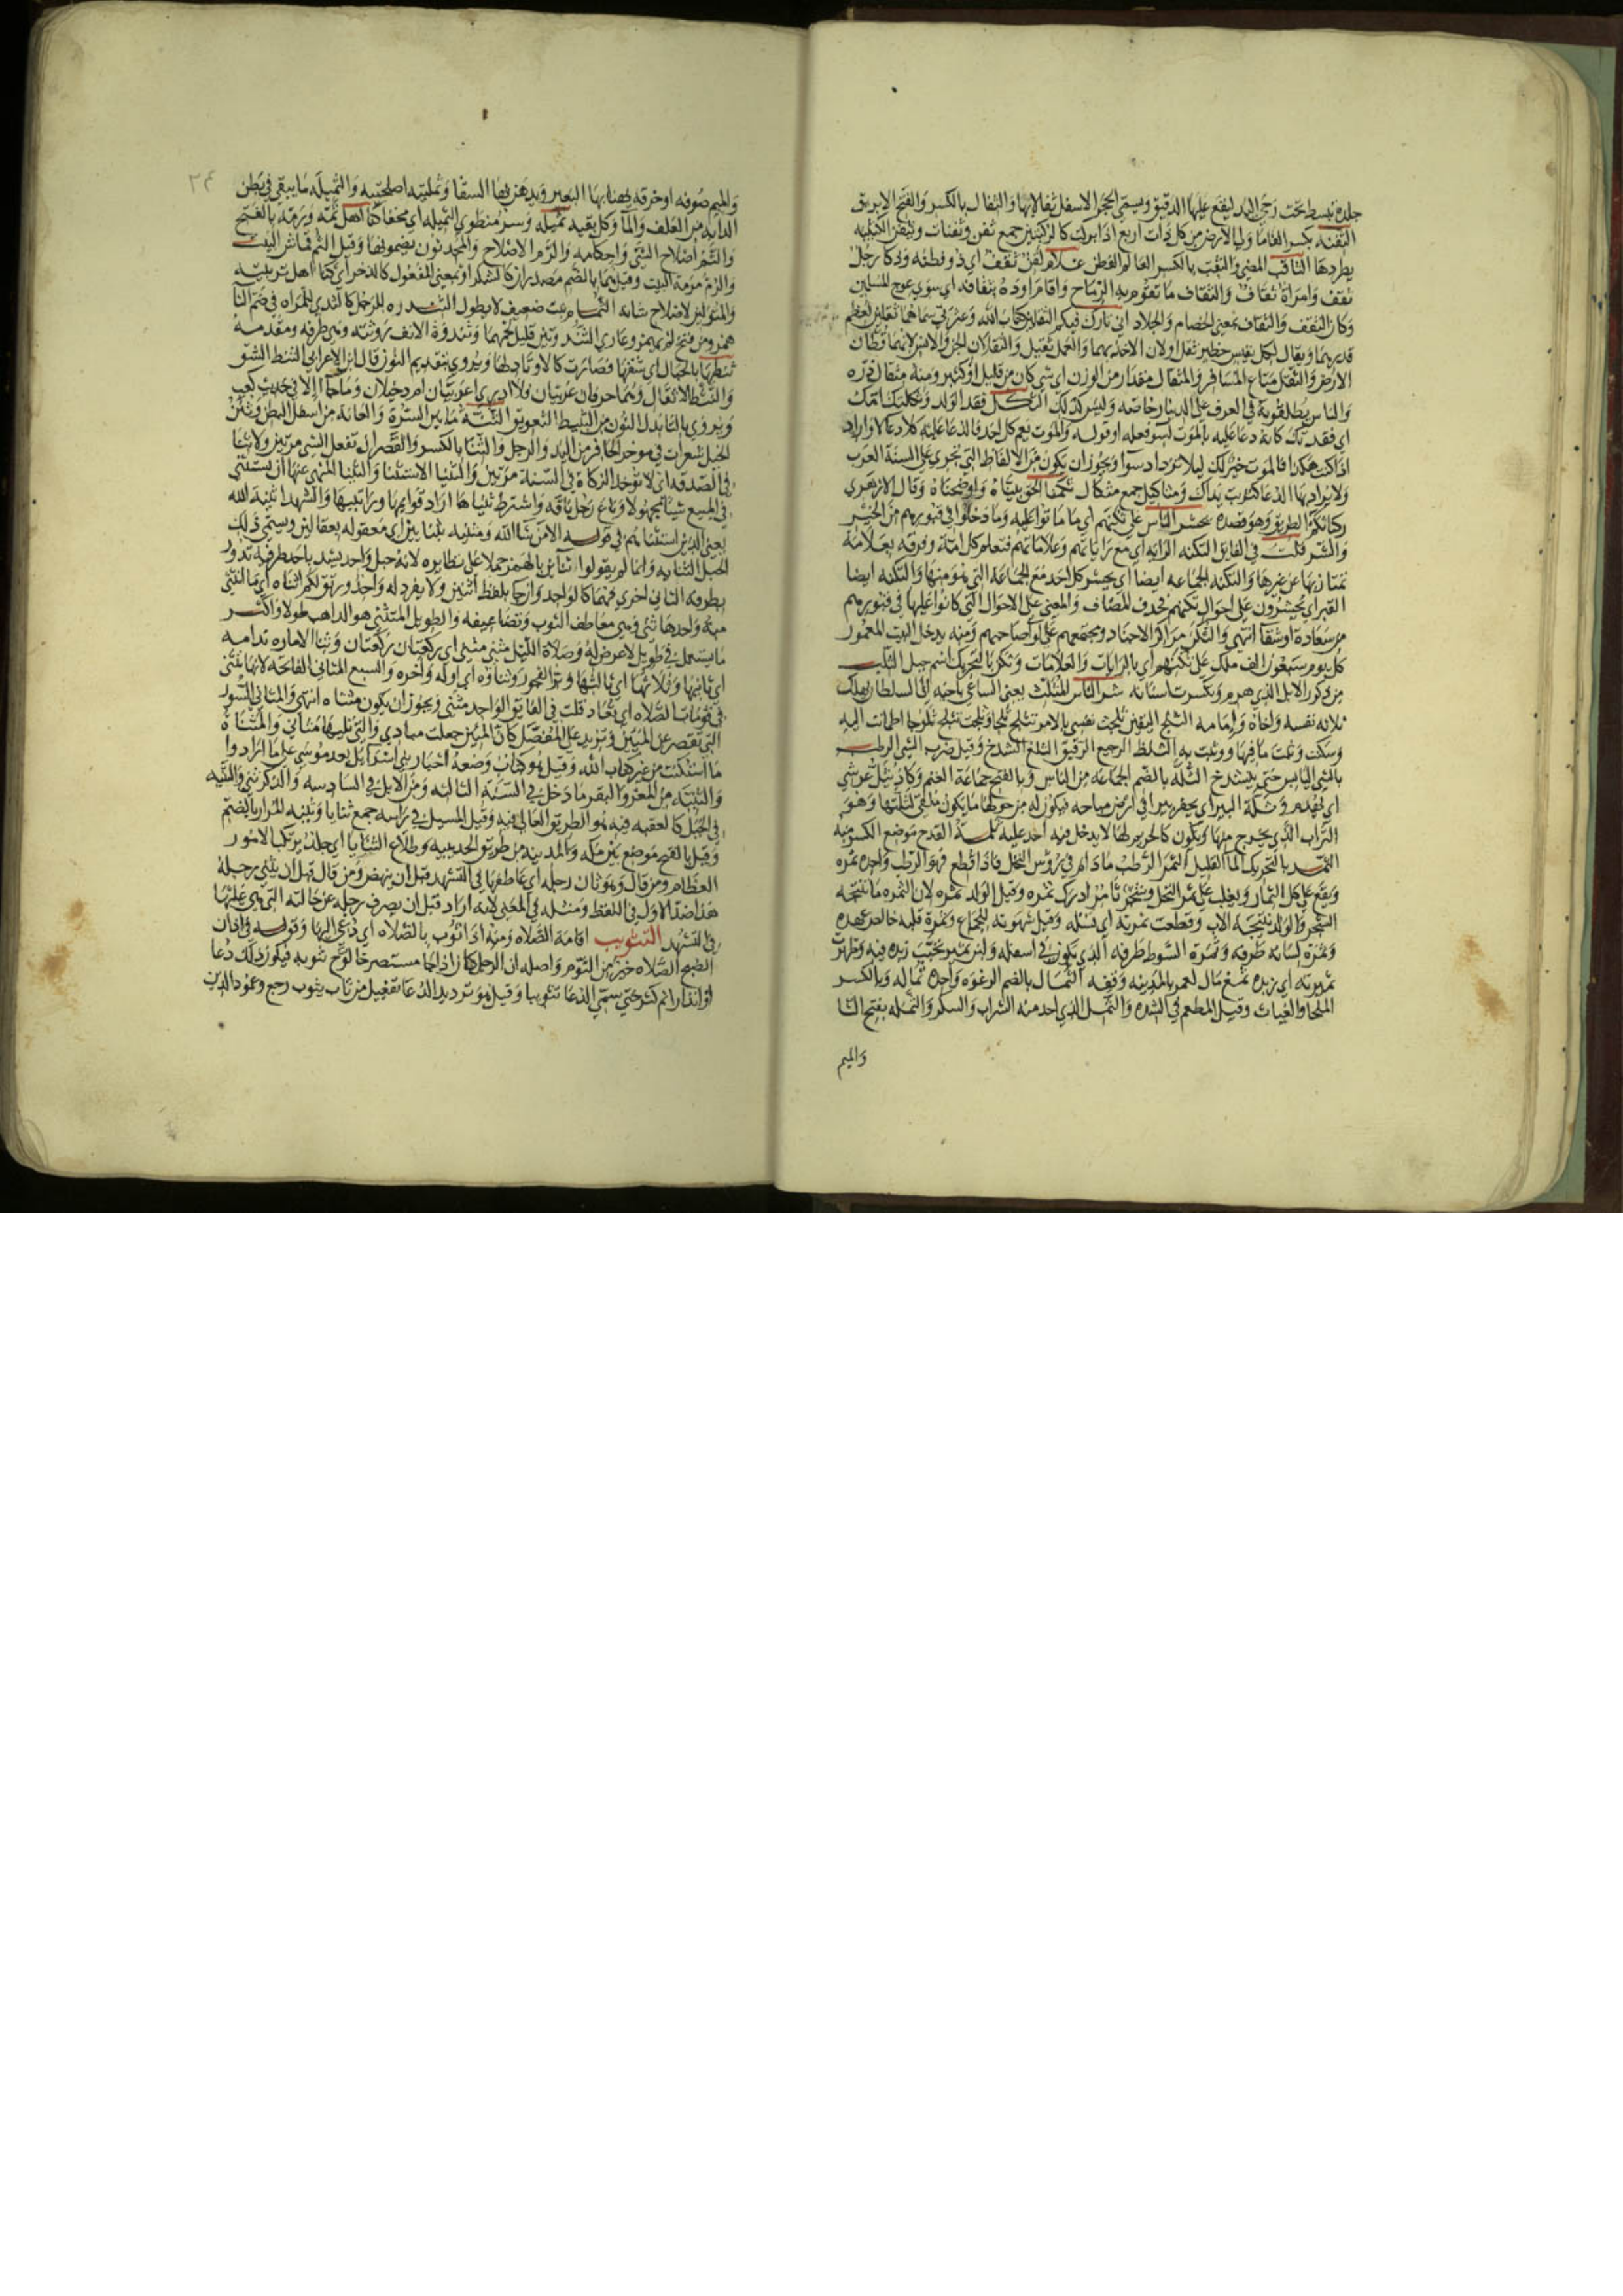 جلدة تبسط تحت رحى اليد ليقع عليها الدقيق ويسمى الحجر الاسفل ثفالا بها والثفال بالكسر والفتح الابريق
الثفنة بكسر الفا ما ولى الارض من كل ذات اربع اذا بركت كالركبتين جمع ثفن وثفنات ويثفن الكتيبه
يطردها الثاقب المضي والمثقب بالكسر العالم الفطن غلام لقن ثقف اي ذو فطنه وذكا رجل
ثقف وامراة ثقاف والثقاف ما تقوم به الرماح واقام اوده بثقافه اي سوى عوج المسلمين
وكان الثقف والثقاف بمعنى الخصام والجلاد اني تارك فيكم الثقلين كتاب الله وعترتي سماهما ثقلين لعظم
قدرهما ويقال لكل نفيس خطير ثقل اولان الاخذ بهما والعمل ثقيل والثقلان الجن والانس لانهما قطان
الارض والثقل متاع المسافر والمثقال مقدار من الوزن اي شي كان من قليل او كثير ومنه مثقال ذره
والناس يطلقونه في العرف على الدينار خاصه وليس كذلك الثكل فقد الولد وثكلتك امك
اي فقدتك كانه دعا عليه بالموت لسو فعله او قوله والموت يعم كل احد فالدعا عليه كلا دعا او اراد
اذا كنت هكذا فالموت خير لك ليلا تزداد سوا ويجوز ان يكون من الالفاظ التي تجري على السنة العرب
ولا يراد بها الدعا كتربت يداك ومثاكيل جمع مثكال ثكما الحق بيناه واوضحناه وقال الازهري
ركبا ثكم الطريق وهو قصده يحشر الناس على ثكنهم اي ما ماتوا عليه وما دخلوا في قبورهم من الخير
والشر قلت في الفايق الثكنه الرايه اي مع راياتهم وعلاماتهم فتعلم كل امة وفرقه بعلامة
تمتاز بها عن غيرها والثكنه الجماعه ايضا اي يحشر كل احد مع الجماعة التي هو منها والثكنه ايضا
القبر اي يحشرون على احوال ثكنهم فحذف المضاف والمعنى على الاحوال التي كانوا عليها في قبورهم
من سعادة او شقا انتهى والثكن مراكز الاجناد ومجتمعهم على لوا صاحبهم ومنه يدخل البيت المعمور
كل يوم سبعون الف ملك على ثكنهم اي بالرايات والعلامات وثكن بالتحريك اسم جبل الثلب
من ذكور الابل الذي هرم وتكسرت اسنانه شر الناس المثلث يعني الساعي باخيه الى السلطان يهلك
ثلاثه نفسه واخاه وامامه الثلج اليقين ثلجت نفسي بالامر تثلج ثلجا وثلجت تثلج ثلوجا اطمانت اليه
وسكنت وثبت ما فيها ووثبت به الثلط الرجيع الرقيق الثلغ الشدخ وقيل ضرب الشي الرطب
بالشي اليابس حتى ينشدخ الثلة بالضم الجماعه من الناس وبالفتح جماعة الغنم وكاد يثل عرشي
اي يهدم وثلة البير اي يحفر بيرا في ارض مباحه فيكون له من حولها ما يكون ملقى لثلتها وهو
التراب الذي يخرج منها ويكون كالحريم لها لا يدخل فيه احد عليه ثلمة القدح موضع الكسر منه
الثمد بالتحريك الما القليل الثمر الرطب ما دام في رؤس النخل فاذا قطع فهو الرطب واحده ثمره
ويقع على كل الثمار ويغلب على ثمر النخل وشجر ثامر ادرك ثمره وقيل الولد ثمره لان الثمره ما ينتجه
الشجر والولد نتيجة الاب وقطعت ثمرته اي نسله وقيل شهوته للجماع وثمرة قلبه خالص عهده
وثمرة لسانه طرفه وثمرة السوط طرفه الذي يكون في اسفله ولبن مثمر تحبب زبده فيه وظهرت
ثميرته اي زبده ثمغ مال لعمر بالمدينه وقفه الثمال بالضم الرغوه واحده ثماله وبالكسر
الملجا والغياث وقيل المطعم في الشده والثمل الذي اخذ منه الشراب والسكر والثمله بفتح الثا
والميم
٢٤
والميم صوفه او خرقه يهنا بها البعير ويدهن بها السقا وثملته اصلحته والثميله ما يبقى في بطن
الدابه من العلف والما وكل بقيه ثميله وسر منطوي الثميله اي مخفا كنا اهل ثمه ورمه بالفتح
والثم اصلاح الشي واحكامه والرم الاصلاح والمحدثون يضمونها وقيل الثم قماش البيت
والرم مرمة البيت وقيل هما بالضم مصدران كالشكر او بمعنى المفعول كالذخر اي كنا اهل تربيته
والمتولين لاصلاح شانه الثمام نبت ضعيف لا يطول الثندوه للرجل كالثدي للمراه فمن ضم الثا
همز ومن فتح لم يهمز وعاري الثندوتين قليل لحمهما وثندوة الانف روثته وهي طرفه ومقدمه
ثنطها بالجبال اي شقها فصارت كالاوتاد لها ويروى بتقديم النون قال ابن الاعرابي الثنط الشق
والنثط الاثقال وهما حرفان غريبان فلا ادري اعربيان ام دخيلان وما جاا الا في حديث كعب
ويروى بالبا بدل النون من التثبيط التعويق الثنة ما بين السرة والعانه من اسفل البطن وثنن
الخيل شعرات في موخر الحافر من اليد والرجل والثنا بالكسر والقصر ان تفعل الشي مرتين ولا ثنا
في الصدقه اي لا توخذ الزكاة في السنة مرتين والثنيا الاستثنا والثنيا المنهي عنها ان يستثنى
في المبيع شيا مجهولا وباع رجل ناقه واشترط ثنياها اراد قوايمها وراسها والشهدا ثنية الله
يعني الذين استثناهم في قوله الا من شا الله ومثنيه بثنايين اي معقوله بعقالين ويسمى ذلك
الحبل الثنايه وانما لم يقولوا ثناين بالهمز حملا على نظايره لانه حبل واحد يشد باحد طرفيه يد ور
بطرفه الثاني اخرى فهما كالواحد وان جا بلفظ اثنين ولا يفرد له واحد وربق لكم اثناه اي ما انثنى
منه واحدها ثنى وهي معاطف الثوب وتضاعيفه والطويل المتثنى هو الذاهب طولا واكثر
ما يستعمل في طويل لا عرض له وصلاة الليل مثنى مثنى اي ركعتان ركعتان وثنا الاماره ندامه
اي ثانيها وثلاثها اي ثالثها وثنا الفجور وثناوه اي اوله واخره والسبع المثاني الفاتحه لانها تثنى
في قومات الصلاه اي تعاد قلت في الفايق الواحد مثنى ويجوز ان يكون مثناه انتهى والمثاني السور
التي تقصر عن المئين وتزيد على المفصل كان المئين جعلت مبادي والتي تليها مثاني والمثناة
ما استكتب من غير كتاب الله وقيل هو كتاب وضعه احبار بني اسرائيل بعد موسى على ما ارادوا
والثنية من المعز والبقر ما دخل في السنة الثالثه ومن الابل في السادسه والذكر ثني والثنيه
في الجبل كالعقبه فيه هو الطريق العالي فيه وقيل المسيل في راسه جمع ثنايا وثنيه المرار بالضم
وقيل بالفتح موضع بين مكه والمدينه من طريق الحديبيه وطلاع الثنايا اي جلد يرتكب الامور
العظام ومن قال وهو ثان رجله اي عاطفها في التشهد قبل ان ينهض ومن قال قبل ان يثني رجله
هذا ضد الاول في اللفظ ومثله في المعنى لانه اراد قبل ان يصرف رجله عن حالته التي هي عليها
في التشهد التثويب اقامة الصلاه ومنه اذا ثوب بالصلاه اي دعي اليها وقوله في اذان
الصبح الصلاه خير من النوم واصله ان الرجل كان اذا جا مستصرخا لوح بثوبه فيكون ذلك دعا
او انذارا ثم كثر حتى سمي الدعا تثويبا وقيل هو ترديد الدعا تفعيل من ثاب يثوب رجع وعمود الدين